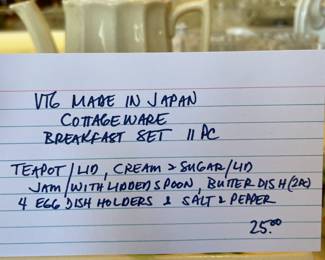 VTG MADE IN JAPAN
COTTAGEWARE
BREAKFAST SET 11 PC
TEAPOT/LID, CREAM & SUGAR/LID
JAM/WITH LIDDED SPOON, BUTTER DISH (2PC)
4 EGG DISH HOLDERS & SALT & PEPPER
25.00